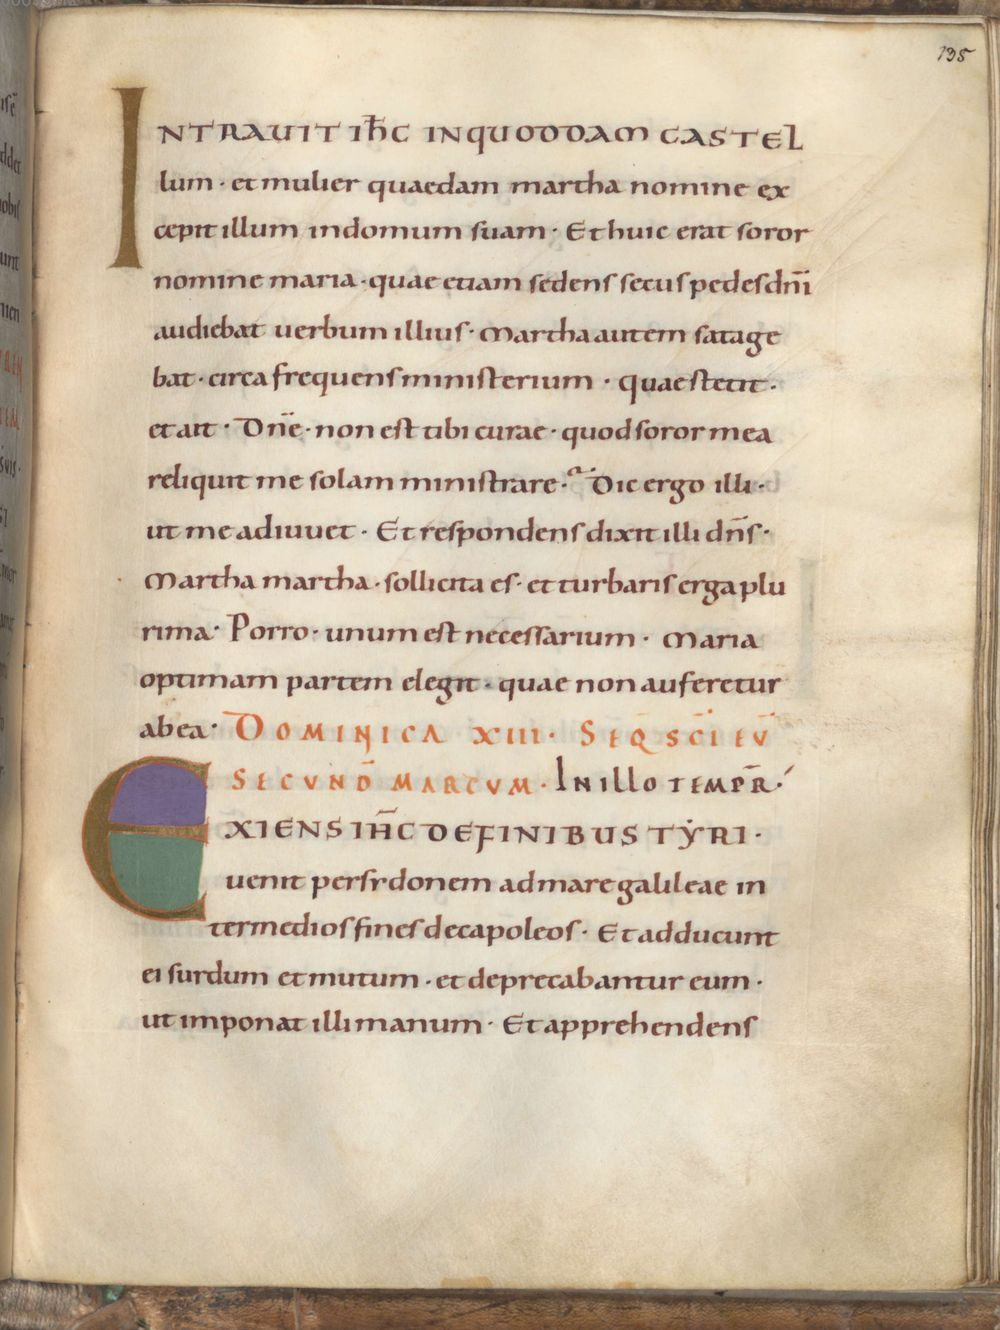 135
INTRAUIT IHC INQUODDAM CASTEL
lum · et mulier quaedam martha nomine ex
cepit illum indomum suam · Et huic erat soror
nomine maria · quae etiam sedens secus pedes dn̄i
audiebat uerbum illius · Martha autem satage
bat · circa frequens ministerium · quae stetit ·
et ait · Dn̄e · non est tibi curae · quod soror mea
reliquit me solam ministrare · Dic ergo illi ·
ut me adiuuet · Et respondens dixit illi dn̄s ·
Martha martha · sollicita es · et turbaris erga plu
rima · Porro · unum est necessarium · Maria
optimam partem elegit · quae non auferetur
ab ea · DOMINICA XIII · SEQ SC̄I EŪ
SECUND̄ MARCUM · IN ILLO TEMPR̄ ·
EXIENS IH̄C DE FINIBUS TẎRI ·
uenit per sydonem ad mare galileae in
ter medios fines decapoleos · Et adducunt
ei surdum et mutum · et deprecabantur eum ·
ut imponat illi manum · Et apprehendens